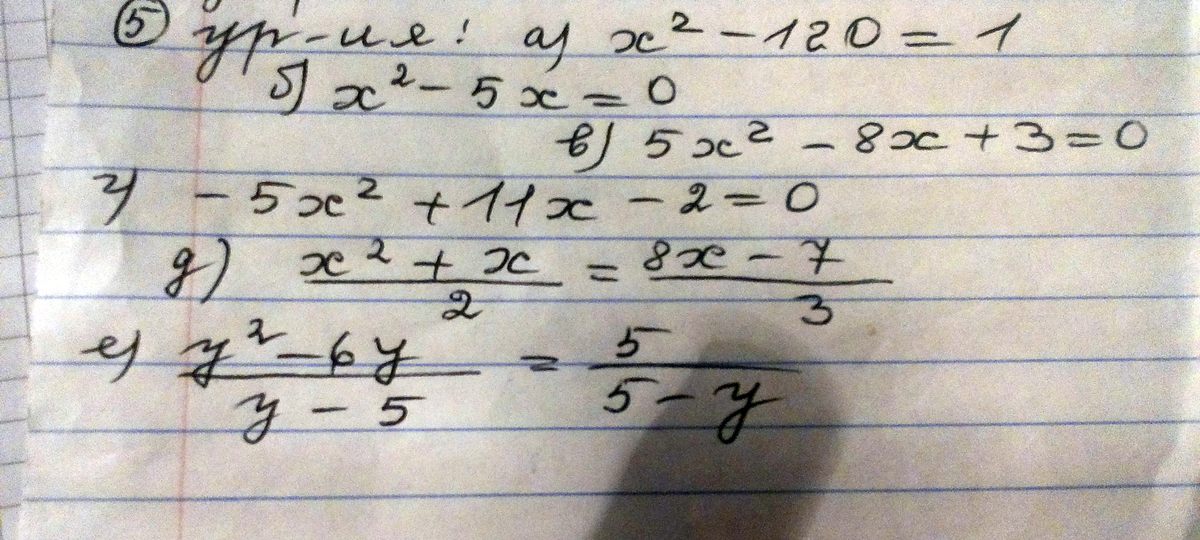 ⑤ ур-ия: а) x² - 120 = 1
б) x² - 5x = 0
в) 5x² - 8x + 3 = 0
г) - 5x² + 11x - 2 = 0
д) (x² + x)/2 = (8x - 7)/3
е) (y² - 6y)/(y - 5) = 5/(5 - y)